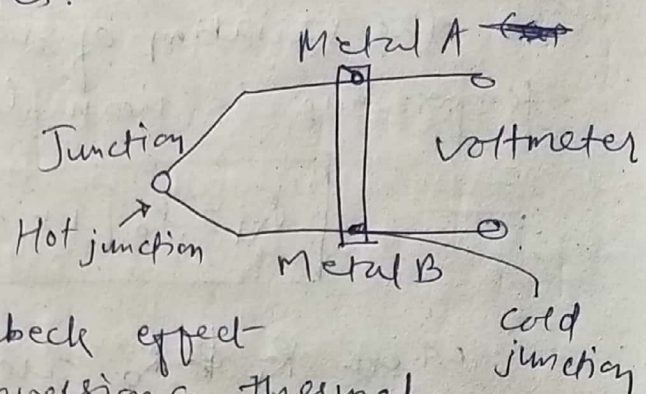 Metal A
Junction
Voltmeter
Hot junction
Metal B
cold
junction
beck effect
thermal